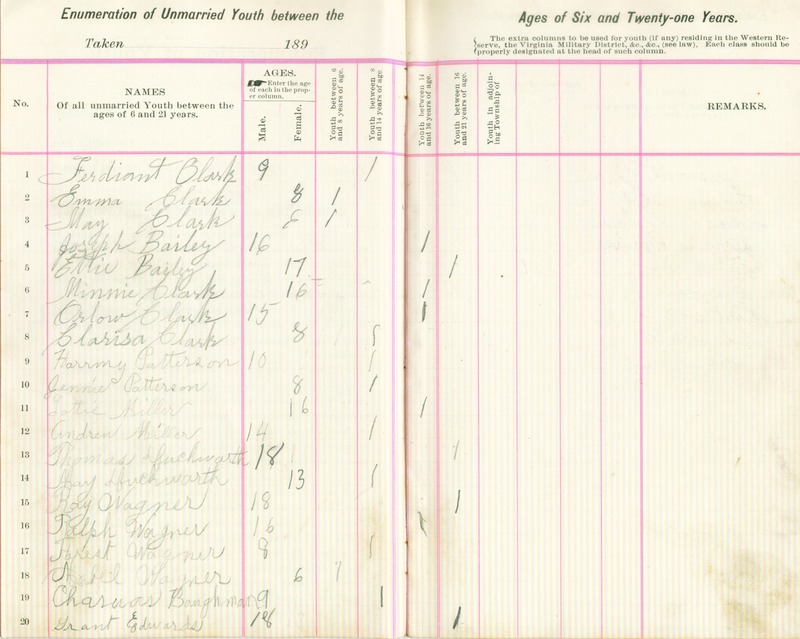 Enumeration of Unmarried Youth between the Ages of Six and Twenty-one Years.
Taken 189
The extra columns to be used for youth (if any) residing in the Western Re-
serve, the Virginia Military District, &c., &c., (see law). Each class should be
properly designated at the head of such column.
No.
NAMES
Of all unmarried Youth between the
ages of 6 and 21 years.
AGES.
Enter the age
of each in the prop-
er column.
Male.
Female.
Youth between 6
and 8 years of age.
Youth between 8
and 14 years of age.
Youth between 14
and 16 years of age.
Youth between 16
and 21 years of age.
Youth in adjoin-
ing Township of
REMARKS.
1 Ferdiant Clark 9 1
2 Emma Clark 8 1
3 May Clark 6 1
4 Joseph Bailey 16 1
5 Effie Bailey 17 1
6 Minnie Clark 16 1
7 Orlow Clark 15 1
8 Clarisa Clark 8 1
9 Harrmy Patterson 10 1
10 Jennie Patterson 8 1
11 Miller 16 1
12 Andrew Miller 14 1
13 Thomas 18 1
14 13 1
15 Roy Wagner 18 1
16 Ralph Wagner 16 1
17 Forest Wagner 8 1
18 Mabel Wagner 6 1
19 Baughman 9 1
20 Grant Edwards 18 1